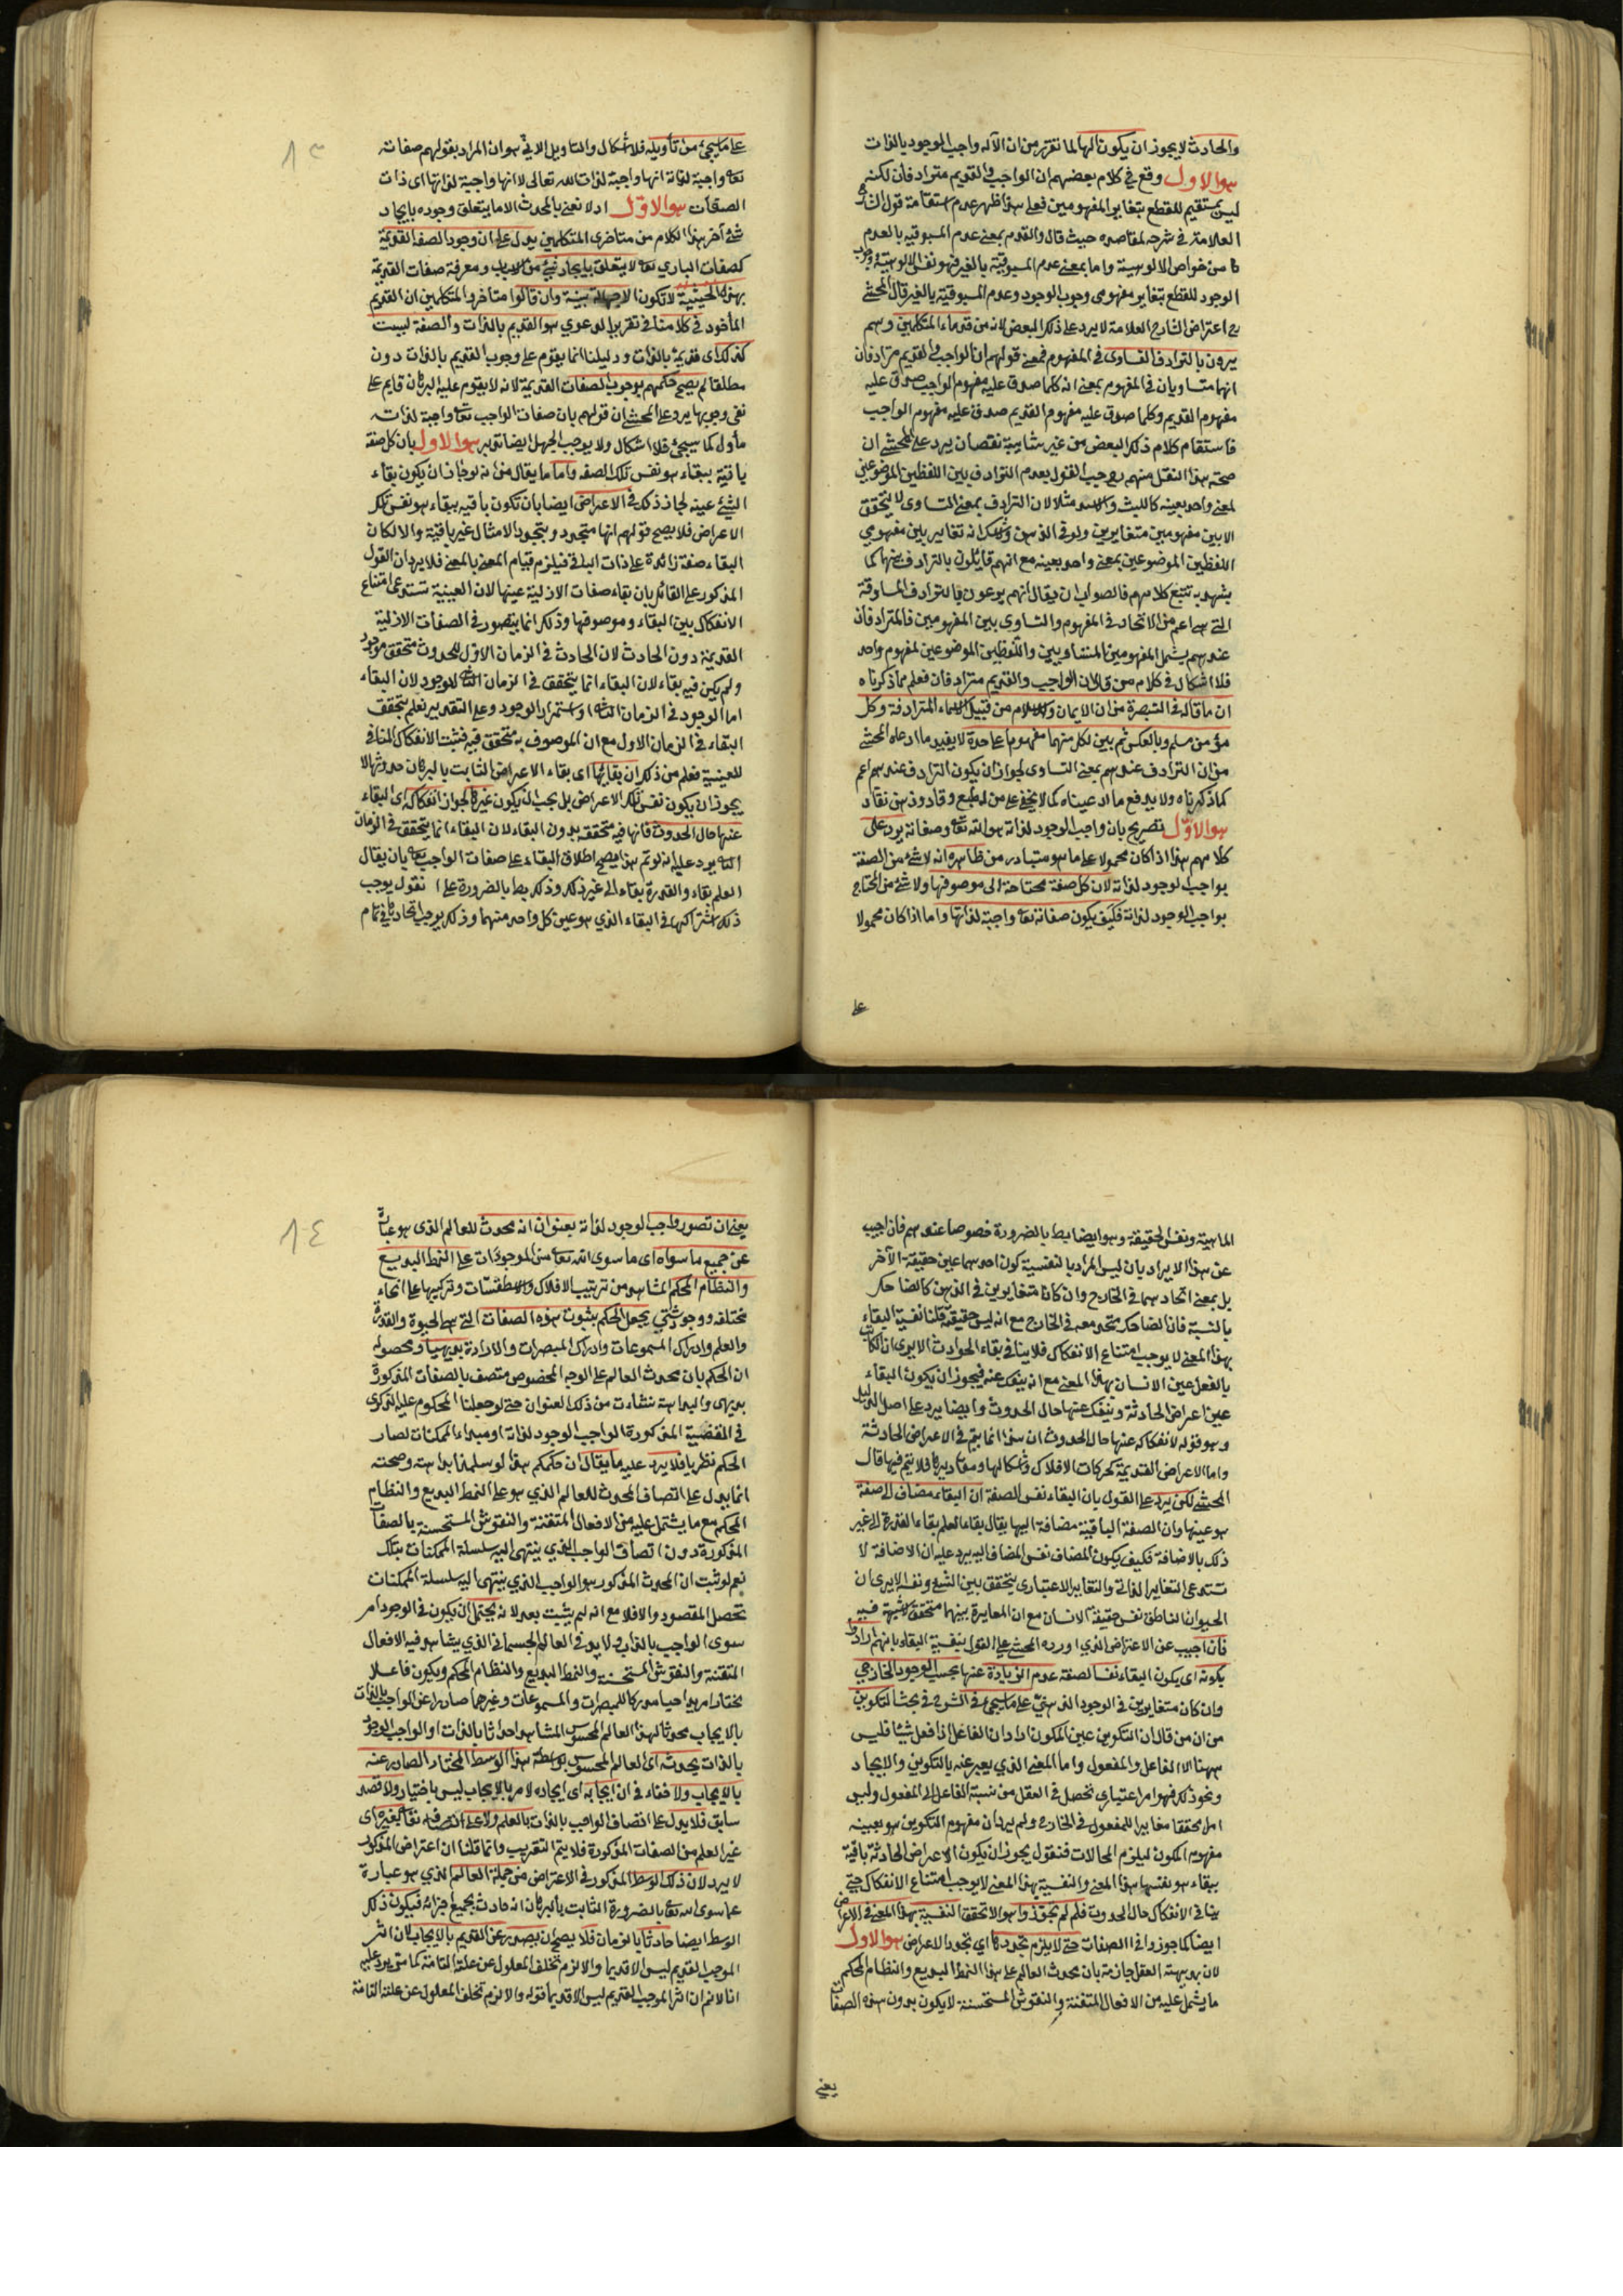 والحادث لا يجوز ان يكون الها لما تقرر من ان الآله واجب الوجود بالذات
هو الاول وقع في كلام بعضهم ان الواجب والقديم مترادفان لكنه
ليس بمستقيم للقطع بتغاير المفهومين فعلى هذا ظهر عدم استقامة قول الشارح
العلامة في شرحه لمقاصده حيث قال والقدم بمعنى عدم المسبوقية بالعدم
من خواص الالوهية واما بمعنى عدم المسبوقية بالغير فهو نفس الالوهية ووجوب
الوجود للقطع بتغاير مفهومي وجوب الوجود وعدم المسبوقية بالغير قال المحشي
اعتراض الشارح العلامة لا يرد على ذلك البعض لانه من قدماء المتكلمين وهم
يريدون بالترادف التساوي في المفهوم فمعنى قولهم ان الواجب والقديم مترادفان
انهما متساويان في المفهوم بمعنى انه كلما صدق عليه مفهوم الواجب صدق عليه
مفهوم القديم وكلما صدق عليه مفهوم القديم صدق عليه مفهوم الواجب
فاستقام كلام ذلك البعض من غير شائبة نقصان يرد على المحشي ان
صحة هذا النقل منهم يوجب القول بعدم الترادف بين اللفظين الموضوعين
لمعنى واحد بعينه كالليث والاسد مثلا لان الترادف بمعنى التساوي لا يتحقق
الا بين مفهومين متغايرين ولو في الذهن ولا شك انه لا تغاير بين مفهومي
اللفظين الموضوعين بمعنى واحد بعينه مع انهم قائلون بالترادف بينهما كما
يشهد به تتبع كلامهم فالصواب ان يقال انهم يدعون بالترادف المساوقة
التي هي اعم من الاتحاد في المفهوم والتساوي بين المفهومين فالمترادفان
عندهم يشمل المفهومين المتساويين واللفظين الموضوعين لمفهوم واحد
فلا اشكال في كلام من قال ان الواجب والقديم مترادفان فعلم مما ذكرناه
ان ما قاله في التبصرة من ان الايمان والاسلام من قبيل الاسماء المترادفة وكل
مؤمن مسلم وبالعكس ثم بين لكل منهما مفهوما على حدة لا يفيد ما ادعاه المحشي
من ان الترادف عندهم بمعنى التساوي لجواز ان يكون الترادف عندهم اعم
كما ذكرناه ولا يدفع ما ادعيناه كما لا يخفى على من له طبع وقاد وذهن نقاد
هو الاول تصريح بان واجب الوجود لذاته هو الله تعالى وصفاته يرد على
كلامهم هذا اذا كان محمولا على ما هو متبادر من ظاهره انه لا شئ من الصفة
بواجب لوجود لذاته لان كل صفة محتاجة الى موصوفها ولا شئ من المحتاج
بواجب الوجود لذاته فكيف يكون صفاته تعالى واجبة لذاتها واما اذا كان محمولا
على
٨٣
على ما سيجئ من تأويله فلا اشكال والتاويل الاتي هو ان المراد بقولهم صفات
تعالى واجبة لذاته انها واجبة لذات الله تعالى لا انها واجبة لذاتها اى ذات
الصفات هو الاول اذ لا نعني بالمحدث الا ما يتعلق وجوده بايجاد
شئ آخر هذا الكلام من متاخرى المتكلمين يدل على ان وجود الصفة القديمة
كصفات الباري تعالى لا يتعلق بايجاد شئ من الاشياء ومعرفة صفات القديمة
بهذه الحيثية لا تكون الا جهالة بينة وان قالوا متاخروا المتكلمين ان القديم
المأخوذ في كلامنا في تقرير الدعوى هو القديم بالذات والصفة ليست
كذلك اى قديمة بالذات ودليلنا انما يقوم على وجوب القديم بالذات دون
مطلقا لم يصح حكمهم بوجوب الصفات القديمة لانه لا يقوم عليه البرهان قايم على
نفي وجوبها يرد على المحشي ان قولهم بان صفات الواجب تعالى واجبة لذاته
مأول كما سيجئ فلا اشكال ولا يوجب الجهل ايضا تدبر هو الاول بان كل صفة
باقية ببقاء هو نفس تلك الصفة واما ما يقال من انه لو جاز ان يكون بقاء
الشئ عينه لجاز ذلك في الاعراض ايضا بان تكون باقية ببقاء هو نفس تلك
الاعراض فلا يصح قولهم انها متجددة بتجدد الامثال غير باقية والا لكان
البقاء صفة زائدة على ذات الباقي فيلزم قيام المعنى بالمعنى فلا يرد ان القول
المذكور على القائل بان بقاء صفات الازلية عينها لان العينية تستدعى امتناع
الانفكاك بين البقاء وموصوفها وذلك انما يتصور في الصفات الازلية
القديمة دون الحادث لان الحادث في الزمان الاول للحدوث متحقق موجود
ولم يكن فيه بقاء لان البقاء انما يتحقق في الزمان الثاني للوجود لان البقاء
اما الوجود في الزمان الثاني او استمرار الوجود وعلى التقديرين لم يتحقق
البقاء في الزمان الاول مع ان الموصوف به متحقق فيه فثبت الانفكاك المنافي
للعينية فعلم من ذلك ان بقائها اى بقاء الاعراض الثابت بالبرهان حدوثها لا
يجوز ان يكون نفس تلك الاعراض بل يجب ان يكون غيرها لجواز انفكاكه اى البقاء
عنها حال الحدوث فانها فيه متحققة بدون البقاء لان البقاء انما يتحقق في الزمان
الثاني يرد عليه انه لو تم هذا يصح اطلاق البقاء على صفات الواجب تعالى بان يقال
العلم بقاء والقدرة بقاء الى غير ذلك وذلك بط بالضرورة على انا نقول يوجب
ذلك اشتراكهما في البقاء الذي هو عين كل واحد منهما وذلك يوجب اتحادها في تمام
الماهية ونفس الحقيقة وهو ايضا بط بالضرورة خصوصا عندهم فان اجيب
عن هذا الايراد بان ليس المراد بالنفسية كون احدهما عين حقيقة الآخر
بل بمعنى اتحادهما في الخارج وان كانا متغايرين في الذهن كالضاحك
بالنسبة فان الضاحك متحد معه في الخارج مع انه ليس حقيقته قلنا نفسية البقاء
بهذا المعنى لا يوجب امتناع الانفكاك فلا ينافي بقاء الحوادث الا يرى ان الكاتب
بالفعل عين الانسان بهذا المعنى مع انه ينفك عنه فيجوز ان يكون البقاء
عين اعراض الحادثة وينفك عنها حال الحدوث وايضا يرد على اصل الدليل
وهو قوله لانفكاكه عنها حال الحدوث ان هذا انما يتم في الاعراض الحادثة
واما الاعراض القديمة كحركات الافلاك واشكالها ومقاديرها فلا يتم فيها قال
المحشي لكن يرد على القول بان البقاء نفس الصفة ان البقاء مضاف الى صفة
هو عينها وان الصفة الباقية مضافة اليها يقال بقاء العلم بقاء القدرة الى غير
ذلك بالاضافة فكيف يكون المضاف نفس المضاف اليه يرد عليه ان الاضافة لا
تستدعى التغاير الذاتي والتغاير الاعتبارى يتحقق بين الشئ ونفسه الا يرى ان
الحيوان الناطق نفس حقيقة الانسان مع ان المغايرة بينهما متحقق لا شبهة فيه
فان اجيب عن الاعتراض الذي اورده المحشي على القول بنفسية البقاء بانهم ارادوا
بكونه اى بكون البقاء نفس الصفة عدم الزيادة عنها بحسب الوجود الخارجي
وان كان متغايرين في الوجود الذهني على ما سيجئ في الشرح في بحث التكوين
من ان من قال ان التكوين عين المكون اراد ان الفاعل اذا فعل شيئا فليس
ههنا الا الفاعل والمفعول واما المعنى الذي يعبر عنه بالتكوين والايجاد
ونحو ذلك فهو امر اعتبارى يحصل في العقل من نسبة الفاعل الى المفعول وليس
امرا محققا مغايرا للمفعول في الخارج ولم يرد ان مفهوم التكوين هو بعينه
مفهوم المكون ليلزم المحالات فنقول يجوز ان يكون الاعراض الحادثة باقية
ببقاء هو نفسها هذا المعنى والنفسية بهذا المعنى لا يوجب امتناع الانفكاك حتى
ينافي الانفكاك حال الحدوث فلم لم يجوزوا هو الاتحقق النفسية بهذا المعنى في الاعراض
ايضا كما جوزوا في الصفات حتى لا يلزم تجددها اي تجدد الاعراض هو الاول
لان بديهة العقل جازمة بان محدث العالم على هذا النمط البديع والنظام المحكم
ما يشمل عليه من الافعال المتقنة والنقوش المستحسنة لا يكون بدون هذه الصفات
يعني
٨٤
يعني ان تصور واجب الوجود لذاته بعنوان انه محدث للعالم الذي هو عبارة
عن جميع ما سواه اى ما سوى الله تعالى من الموجودات على النمط البديع
والنظام المحكم المشاهد من ترتيب الافلاك والاسطقسات وتركيبها على انحاء
مختلفة ووجوه شتى يجعل الحكم بثبوت هذه الصفات التي هي الحيوة والقدرة
والعلم وادراك المسموعات وادراك المبصرات والارادة بديهيا ومحصوله
ان الحكم بان محدث العالم على الوجه المخصوص متصف بالصفات المذكورة
بديهى والبداهة نشاءت من ذلك العنوان حتى لو جعلنا المحكوم عليه الذكرى
في القضية المذكورة الواجب الوجود لذاته او مبداء الممكنات لصار
الحكم نظريا فلا يرد عليه ما يقال ان حكمكم هذا لو سلمنا بداهته وصحته
انما يدل على اتصاف المحدث للعالم الذي هو على النمط البديع والنظام
المحكم مع ما يشتمل عليه من الافعال المتقنة والنقوش المستحسنة بالصفات
المذكورة دون اتصاف الواجب الذي ينتهى اليه سلسلة الممكنات بتلك
نعم لو ثبت ان المحدث المذكور هو الواجب الذي ينتهى اليه سلسلة الممكنات
تحصل المقصود والا فلا مع انه لم يثبت بعد لانه يحتمل ان يكون في الوجود امر
سوى الواجب بالذات ولا يوجد في العالم الجسماني الذي يشاهد فيه الافعال
المتقنة والنقوش المستحسنة والنمط البديع والنظام المحكم ويكون فاعلا
مختارا مريدا حيا مدركا للمبصرات والمسموعات وغيرهما صادرا عن الواجب بالذات
بالايجاب محدثا لهذا العالم المحسوس المشاهد احداثا بالذات او الواجب الوجود
بالذات يحدثه اى العالم المحسوس بواسطة هذا الوسط المختار الصادر عنه
بالايجاب ولا خفاء في ان ايجابه اى ايجاده لامر بالايجاب ليس باختيار ولا قصد
سابق فلا يدل على اتصاف الواجب بالذات بالعلم ولا على اتصافه تعالى بغيره اى
غير العلم من الصفات المذكورة فلا يتم التقريب وانما قلنا ان اعتراض المذكور
لا يرد لان ذلك الوسط المذكور في الاعتراض من جملة العالم الذي هو عبارة
عما سوى الله تعالى بالضرورة الثابت بالبرهان انه حادث بجميع اجزائه فيكون ذلك
الوسط ايضا حادثا بالزمان فلا يصح ان يصدر عن القديم بالايجاب لان اثر
الموجب القديم ليس الا قديما والا لزم تخلف المعلول عن علته التامة كما مر يرد عليه
انا لا نم ان اثر الموجب القديم ليس الا قديما قوله والا لزم تخلف المعلول عن علته التامة